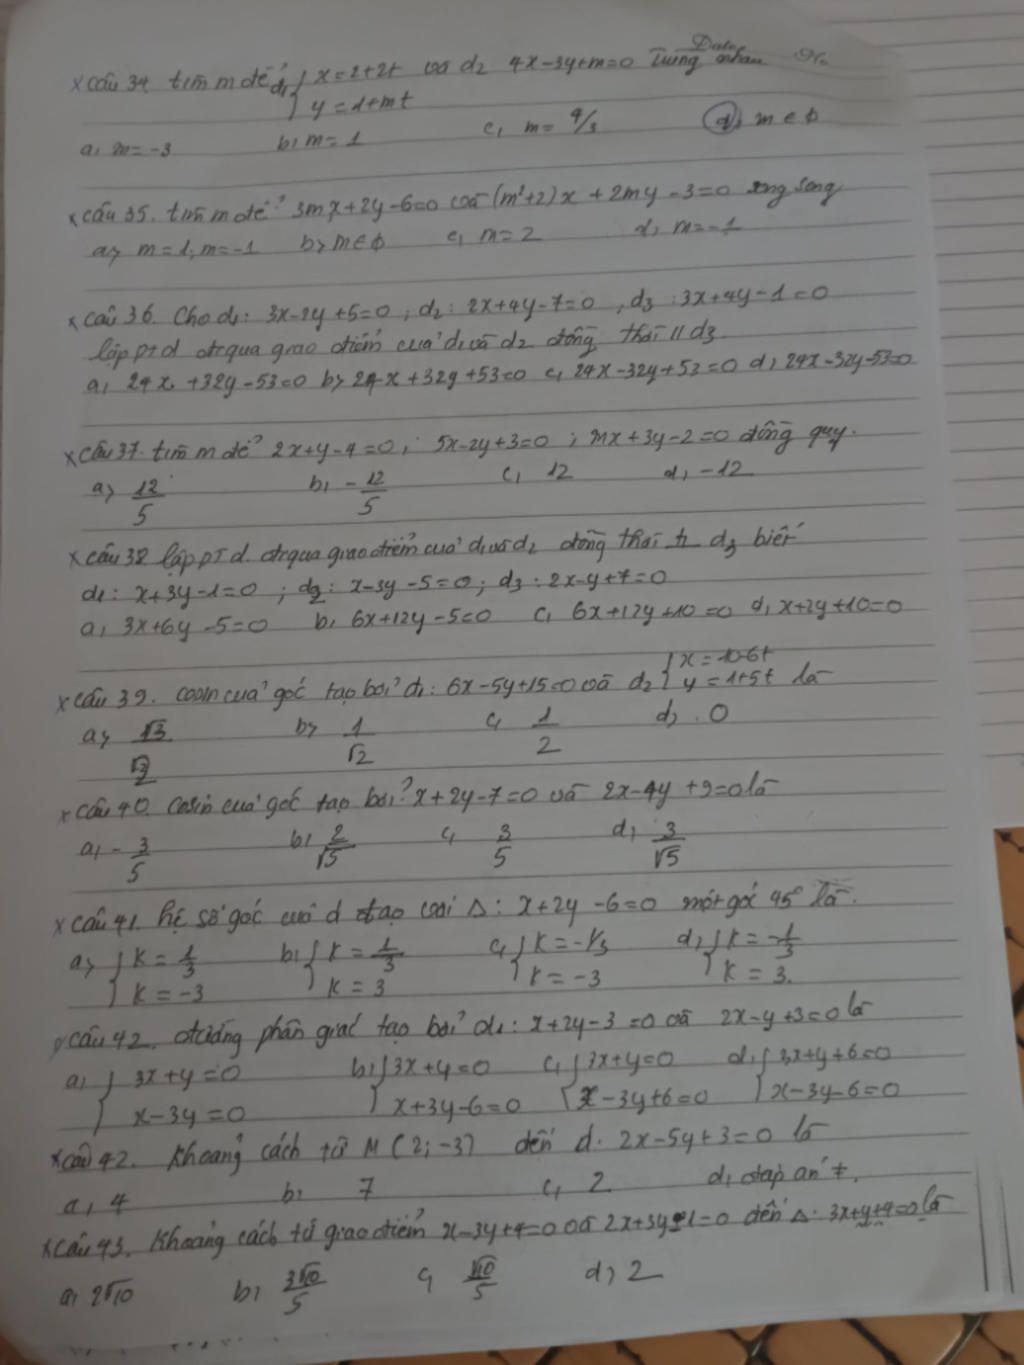 Date No
x câu 34 tìm m để d₁ { x = 2+2t và d₂ 4x-3y+m=0 trùng nhau
y = 1+mt
a, m = -3 b, m = 1 c, m = 4/3 d, m ∈ ϕ
x câu 35. tìm m để 3mx+2y-6=0 và (m²+2)x + 2my -3=0 song song
a, m = 1; m = -1 b, m ∈ ϕ c, m = 2 d, m = -1
x câu 36. Cho d₁: 3x-2y+5=0, d₂: 2x+4y-7=0, d₃: 3x+4y-1=0
lập pt d đt qua giao điểm của d₁ và d₂ đồng thời // d₃.
a, 24x +32y-53=0 b, 24x+32y+53=0 c, 24x-32y+53=0 d, 24x-32y-53=0
x câu 37. tìm m để 2x+y-4=0; 5x-2y+3=0; mx+3y-2=0 đồng quy.
a, 12/5 b, -12/5 c, 12 d, -12
x câu 38 lập pt d. đt qua giao điểm của d₁ và d₂ đồng thời d₃ biết
d₁: x+3y-1=0; d₂: x-3y-5=0; d₃: 2x-y+7=0
a, 3x+6y-5=0 b, 6x+12y-5=0 c, 6x+12y+10=0 d, x+2y+10=0
x câu 39. cosin của góc tạo bởi d₁: 6x-5y+15=0 và d₂ { x = 10-6t
y = 1+5t là
a, √3/√2 b, 1/√2 c, 1/2 d, 0
x câu 40. Cosin của góc tạo bởi x+2y-7=0 và 2x-4y+9=0 là
a, -3/5 b, 2/√5 c, 3/5 d, 3/√5
x câu 41. hệ số góc của d tạo với Δ: x+2y-6=0 một góc 45° là.
a, { k = 1/3 b, { k = 1/3 c, { k = -1/3 d, { k = -1/3
k = -3 k = 3 k = -3 k = 3.
câu 42. đường phân giác tạo bởi d₁: x+2y-3=0 và 2x-y+3=0 là
a, { 3x+y=0 b, { 3x+y=0 c, { 3x+y=0 d, { 3x+y+6=0
x-3y=0 x+3y-6=0 x-3y+6=0 x-3y-6=0
x câu 42. Khoảng cách từ M(2;-3) đến d. 2x-5y+3=0 là
a, 4 b, 7 c, 2 d, đáp án ≠.
x câu 43. Khoảng cách từ giao điểm x-3y+4=0 và 2x+3y-1=0 đến Δ: 3x+y+4=0 là
a, 2√10 b, 3√10/5 c, √10/5 d, 2